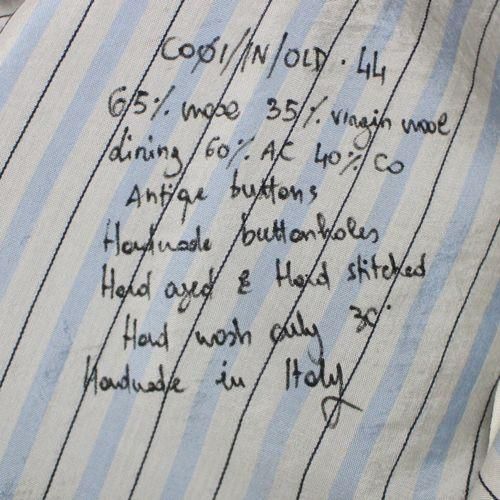 COØ1/IN/OLD · 44
65% wool 35% virgin wool
dining 60% AC 40% CO
Antique buttons
Handmade buttonholes
Hand aged & Hand stitched
Hand wash only 30°
Handmade in Italy